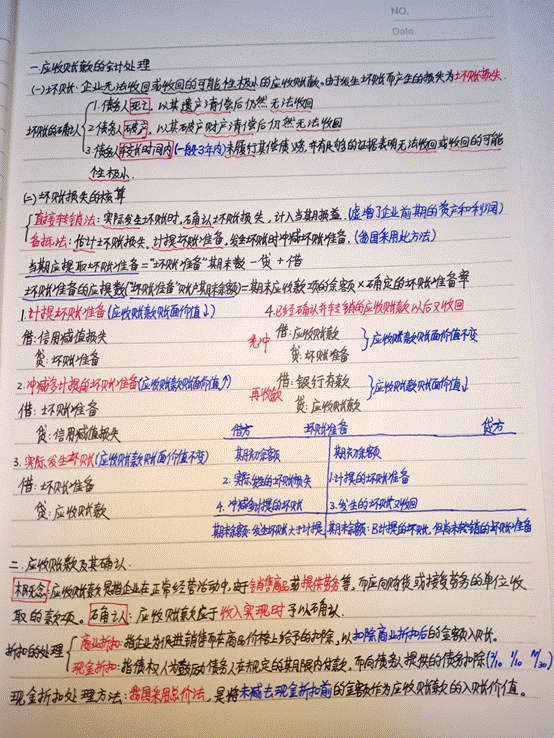 NO.
Date.
一.应收账款的会计处理
(一)坏账:企业无法收回或收回的可能性极小的应收账款。由于发生坏账而产生的损失为坏账损失.
坏账的确认
1.债务人死亡,以其遗产清偿后仍然无法收回
2.债务人破产,以其破产财产清偿后仍然无法收回
3.债务人较长时间内(一般3年内)未履行其偿债义务,并有足够的证据表明无法收回或收回的可能
性极小.
(二)坏账损失的核算
直接转销法:实际发生坏账时,确认坏账损失,计入当期损益.(虚增了企业前期的资产和利润)
备抵法:估计坏账损失,计提坏账准备,发生坏账时冲减坏账准备.(我国采用此方法)
当期应提取坏账准备="坏账准备"期末数-贷+借
坏账准备的应提数("坏账准备"账户期末余额)=期末应收款项的余额×确定的坏账准备率
1.计提坏账准备(应收账款账面价值↓)
借:信用减值损失
贷:坏账准备
2.冲减多计提的坏账准备(应收账款账面价值↑)
借:坏账准备
贷:信用减值损失
3.实际发生坏账(应收账款账面价值不变)
借:坏账准备
贷:应收账款
4.已经确认并转销的应收账款以后又收回
先冲
借:应收账款
贷:坏账准备
}应收账款账面价值不变
再收款
借:银行存款
贷:应收账款
}应收账款账面价值↓
借方 坏账准备 贷方
期初余额 期末余额
2.实际发生的坏账损失 1.计提的坏账准备
4.冲减多计提的坏账 3.发生的坏账又收回
期末余额:发生坏账大于计提 期末余额:已计提的坏账,但尚未转销的坏账准备
二.应收账款及其确认.
概念:应收账款是指企业在正常经营活动中,由于销售商品或提供劳务等,而应向购货或接受劳务的单位收
取的款项。确认:应收账款应于收入实现时予以确认.
折扣的处理
商业折扣:指企业为促进销售而在商品价格上给予的扣除,以扣除商业折扣后的金额入账.
现金折扣:指债权人为鼓励债务人在规定的期限内付款,而向债务人提供的债务扣除(2/10 1/10 N/30)
现金折扣处理方法:我国采用总价法,是将未减去现金折扣前的金额作为应收账款的入账价值。